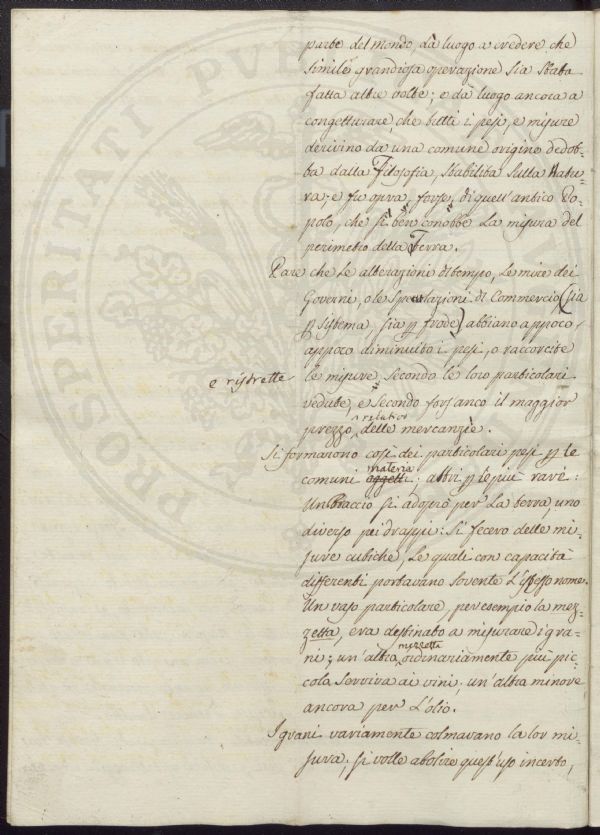 parte del mondo, dà luogo a vedere che
simile grandiosa operazione sia stata
fatta altre volte; e dà luogo ancora a
congetturare, che tutti i pesi, e misure
derivino da una comune origine dedot-
ta dalla Filosofia, stabilita sulla Natu-
ra; e fu opra, forse, di quell'antico Po-
polo, che sì ben conobbe la misura del
perimetro della Terra.
Pare che le alterazioni di tempo, le mire dei
Governi, o le speculazioni di Commercio (sia
p sistema, sia p frode) abbiano appoco,
appoco diminuito i pesi, o raccorcite
e ristrette
le misure, secondo le loro particolari
vedute, e secondo fors'anco il maggior
relativo
prezzo delle mercanzie.
Si formarono così dei particolari pesi p le
materie
comuni oggetti; altri p le più rare:
Un Braccio si adoprò per la terra, uno
diverso pei drappi: Si fecero delle mi-
sure cubiche, le quali con capacità
differenti portavano sovente l'istesso nome.
Un vaso particolare, per esempio la mez-
zetta, era destinato a misurare i gra-
ni; un'altra
mezzetta
ordinariamente più pic-
cola serviva ai vini; un'altra minore
ancora per l'olio.
I grani variamente colmavano la lor mi-
sura; si volle abolire quest'uso incerto,
PROSPERITATI PUB